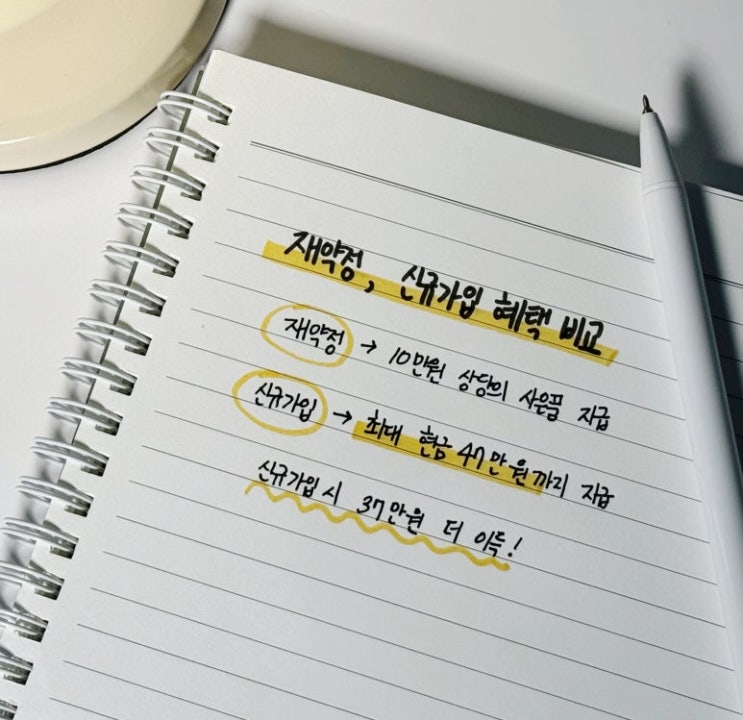 재약정, 신규가입 혜택 비교
재약정 → 10만원 상당의 사은품 지급
신규가입 → 최대 현금 47만원까지 지급
신규가입 시 37만원 더 이득!